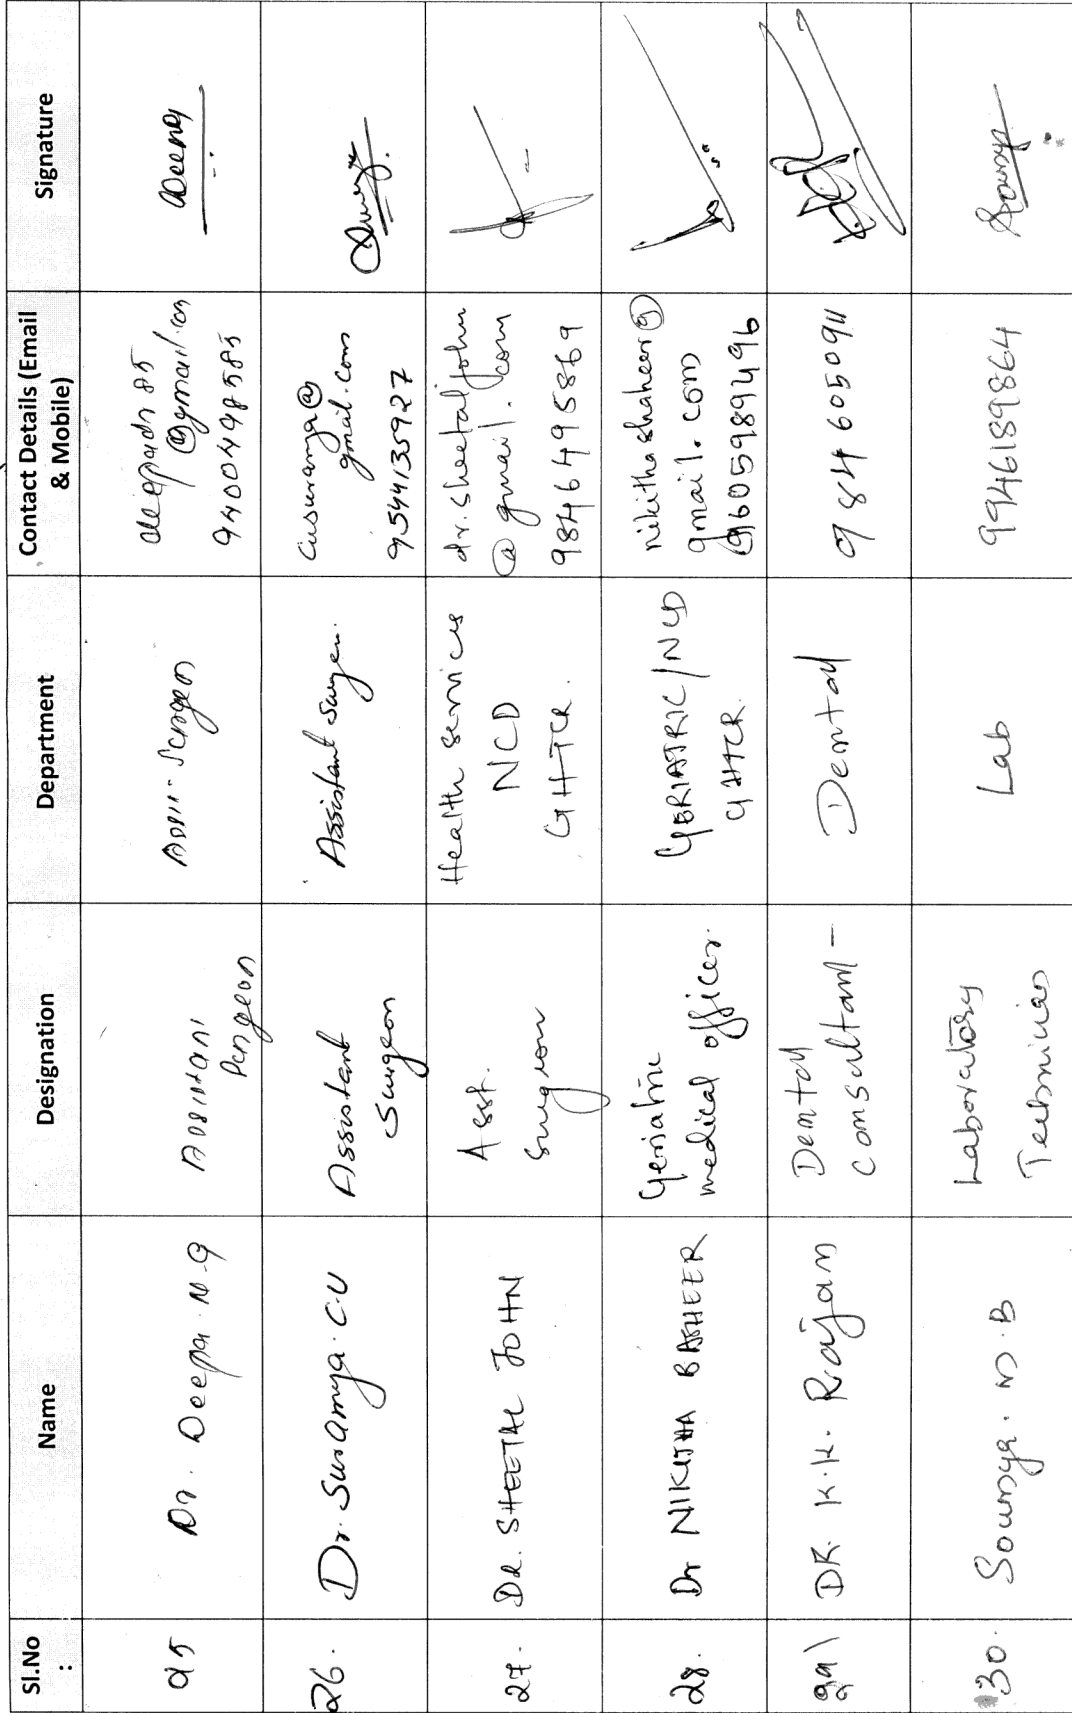 Sl.No
:
Name
Designation
Department
Contact Details (Email
& Mobile)
Signature
25
Dr. Deepa. N.G
Assistant
Surgeon
Asst. Surgeon
@gmail.com
9400498585
26.
Dr. Suramya. C.U
Assistant
Surgeon
Assistant Surgeon.
cusuramya@
gmail.com
9544135927
27.
DR. SHEETAL JOHN
Asst.
Surgeon
Health services
NCD
GHTCR.
dr.sheetaljohn
@gmail.com
9846495869
28.
Dr NIKITHA BASHEER
Geriatric
medical officer.
GERIATRIC/NCD
GHTCR.
nikithashaheer@
gmail.com
9605989496
29
DR. K.K. Rajan
Dental
Consultant
Dental
9846050911
30.
Soumya. M.B
Laboratory
Technician
Lab
9946189864
Soumya